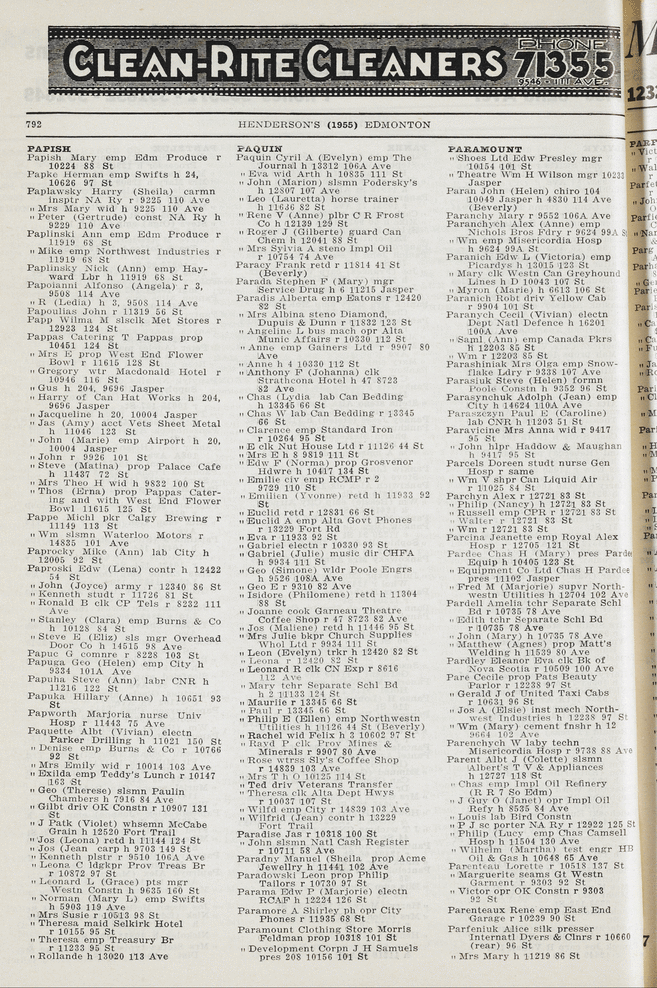 CLEAN-RITE CLEANERS PHONE 71355
9546 - 111 AVE.
792 HENDERSON'S (1955) EDMONTON
PAPISH
Papish Mary emp Edm Produce r
10224 88 St
Papke Herman emp Swifts h 24,
10626 97 St
Paplawsky Harry (Sheila) carmn
insptr NA Ry r 9225 110 Ave
" Mrs Mary wid h 9225 110 Ave
" Peter (Gertrude) const NA Ry h
9229 110 Ave
Paplinski Ann emp Edm Produce r
11919 68 St
" Mike emp Northwest Industries r
11919 68 St
Paplinsky Nick (Ann) emp Hay-
ward Lbr h 11919 68 St
Papoianni Alfonso (Angela) r 3,
9508 114 Ave
" R (Ledia) h 3, 9508 114 Ave
Papoulias John r 11319 56 St
Papp Wilma M slsclk Met Stores r
12923 124 St
Pappas Catering T Pappas prop
10451 124 St
" Mrs E prop West End Flower
Bowl r 11615 128 St
" Gregory wtr Macdonald Hotel r
10946 116 St
" Gus h 204, 9696 Jasper
" Harry of Can Hat Works h 204,
9696 Jasper
" Jacqueline h 20, 10004 Jasper
" Jas (Amy) acct Vets Sheet Metal
h 11046 123 St
" John (Marie) emp Airport h 20,
10004 Jasper
" John r 9926 101 St
" Steve (Matina) prop Palace Cafe
h 11437 72 St
" Mrs Theo H wid h 9832 100 St
" Thos (Erna) prop Pappas Cater-
ing and with West End Flower
Bowl 11615 125 St
Pappe Michl pkr Calgy Brewing r
11149 113 St
" Wm slsmn Waterloo Motors r
14835 101 Ave
Paprocky Mike (Ann) lab City h
12005 92 St
Paproski Edw (Lena) contr h 12422
54 St
" John (Joyce) army r 12340 86 St
" Kenneth studt r 11726 81 St
" Ronald B clk CP Tels r 8232 111
Ave
" Stanley (Clara) emp Burns & Co
h 10128 84 St
" Steve E (Eliz) sls mgr Overhead
Door Co h 14515 98 Ave
Papuc G comnr r 8228 103 St
Papuga Geo (Helen) emp City h
9334 101A Ave
Papuha Steve (Ann) labr CNR h
11216 122 St
Papuka Hillary (Anne) h 10651 93
St
Papworth Marjoria nurse Univ
Hosp r 11443 75 Ave
Paquette Albt (Vivian) electn
Parker Drilling h 11021 150 St
" Denise emp Burns & Co r 10766
92 St
" Mrs Emily wid r 10014 103 Ave
" Exilda emp Teddy's Lunch r 10147
163 St
" Geo (Therese) slsmn Paulin
Chambers h 7916 84 Ave
" Gilbt driv OK Constn r 10907 131
St
" J Patk (Violet) whsemn McCabe
Grain h 12520 Fort Trail
" Jos (Leona) retd h 11144 124 St
" Jos (Jean carp h 9703 149 St
" Kenneth plstr r 9510 106A Ave
" Leona C ldgkpr Prov Treas Br
r 10872 97 St
" Leonard L (Grace) pts mgr
Westn Constn h 9625 160 St
" Norman (Mary L) emp Swifts
h 5903 119 Ave
" Mrs Susie r 10513 98 St
" Theresa maid Selkirk Hotel
r 10155 95 St
" Theresa emp Treasury Br
r 11233 95 St
" Rollande h 13020 113 Ave
PAQUIN
Paquin Cyril A (Evelyn) emp The
Journal h 13312 106A Ave
" Eva wid Arth h 10835 111 St
" John (Marion) slsmn Podersky's
h 12807 107 Ave
" Leo (Lauretta) horse trainer
h 11636 82 St
" Rene V (Anne) plbr C R Frost
Co h 12139 129 St
" Roger J (Gilberte) guard Can
Chem h 12041 88 St
" Mrs Sylvia A steno Impl Oil
r 10754 74 Ave
Paracy Frank retd r 11814 41 St
(Beverly)
Parada Stephen F (Mary) mgr
Service Drug h 6 11215 Jasper
Paradis Alberta emp Eatons r 12420
82 St
" Mrs Albina steno Diamond,
Dupuis & Dunn r 11832 123 St
" Angeline L bus mach opr Alta
Munic Affairs r 10330 112 St
" Anne emp Gainers Ltd r 9907 80
Ave
" Anne h 4 10330 112 St
" Anthony P (Johanna) clk
Strathcona Hotel h 47 8723
82 Ave
" Chas (Lydia lab Can Bedding
h 13345 66 St
" Chas W lab Can Bedding r 13345
66 St
" Clarence emp Standard Iron
r 10264 95 St
" E clk Nut House Ltd r 11126 44 St
" Mrs E h 8 9819 111 St
" Edw F (Norma) prop Grosvenor
Hdwre h 10417 134 St
" Emilie civ emp RCMP r 2
9729 110 St
" Emilien (Yvonne) retd h 11933 92
St
" Euclid retd r 12831 66 St
" Euclid A emp Alta Govt Phones
r 13229 Fort Rd
" Eva r 11933 92 St
" Gabriel electn r 10330 93 St
" Gabriel (Julie) music dir CHFA
h 9934 111 St
" Geo (Simone) wldr Poole Engrs
h 9526 108A Ave
" Geo E r 9310 82 Ave
" Isidore (Philomene) retd h 11304
88 St
" Joanne cook Garneau Theatre
Coffee Shop r 47 8723 82 Ave
" Jos (Malione) retd h 11446 95 St
" Mrs Julie bkpr Church Supplies
Whol Ltd r 9934 111 St
" Leon (Evelyn) trkr h 12420 82 St
" Leona r 12420 82 St
" Leonard R clk CN Exp r 8616
112 Ave
" Mary tchr Separate Schl Bd
h 2 11133 124 St
" Maurile r 13345 66 St
" Paul r 13345 66 St
" Philip B (Ellen) emp Northwestn
Utilities h 11126 44 St (Beverly)
" Rachel wid Felix h 3 10602 97 St
" Rayd P clk Prov Mines &
Minerals r 9907 80 Ave
" Rose wtrss Sly's Coffee Shop
r 14839 103 Ave
" Mrs T h O 10125 114 St
" Ted driv Veterans Transfer
" Theresa clk Alta Dept Hwys
r 10037 107 St
" Wilfd emp City r 14839 103 Ave
" Wilfrid (Jean) contr h 13229
Fort Trail
Paradise Jas r 10318 100 St
" John slsmn Natl Cash Register
r 10711 58 Ave
Paradny Manuel (Sheila prop Acme
Jewellry h 11441 102 Ave
Paradowski Leon prop Philip
Tailors r 10730 97 St
Parama Edw P (Marjorie) electn
RCAF h 12224 126 St
Paramore A Shirley ph opr City
Phones r 11935 68 St
Paramount Clothing Store Morris
Feldman prop 10318 101 St
" Development Corpn J H Samuels
pres 208 10156 101 St
PARAMOUNT
" Shoes Ltd Edw Presley mgr
10154 101 St
" Theatre Wm H Wilson mgr 10233
Jasper
Paran John (Helen) chiro 104
10049 Jasper h 4830 114 Ave
(Beverly)
Paranchy Mary r 9552 106A Ave
Paranchych Alex (Anne) emp
Nichols Bros Fdry r 9624 99A S
" Wm emp Misericordia Hosp
h 9624 99A St
Paranich Edw L (Victoria) emp
Picardys h 13015 123 St
" Mary clk Westn Can Greyhound
Lines h D 10043 107 St
" Myron (Marie) h 6613 106 St
Paranich Robt driv Yellow Cab
r 9904 101 St
Paranych Cecil (Vivian) electn
Dept Natl Defence h 16201
100A Ave
" Saml (Ann) emp Canada Pkrs
h 12203 85 St
" Wm r 12203 85 St
Parashiniak Mrs Olga emp Snow-
flake Ldry r 9338 107 Ave
Parasiuk Steve (Helen) formn
Poole Constn h 9352 96 St
Parasynchuk Adolph (Jean) emp
City h 14624 110A Ave
Paraszczyn Paul E (Caroline)
lab CNR h 11203 51 St
Paravicine Mrs Anna wid r 9417
95 St
" John hlpr Haddow & Maughan
h 9417 95 St
Parcels Doreen studt nurse Gen
Hosp r same
" Wm V shpr Can Liquid Air
r 11025 84 St
Parchyn Alex r 12721 83 St
" Philip (Nancy) h 12721 83 St
" Russell emp CPR r 12721 83 St
" Walter r 12721 83 St
" Wm r 12721 83 St
Parcina Jeanette emp Royal Alex
Hosp r 12705 121 St
Pardee Chas H (Mary) pres Pardee
Equip h 10405 123 St
" Equipment Co Ltd Chas H Pardee
pres 11102 Jasper
" Fred M (Marjorie) supvr North-
westn Utilities h 12704 102 Ave
Pardell Amelia tchr Separate Schl
Bd r 10735 78 Ave
" Edith tchr Separate Schl Bd
r 10735 78 Ave
" John (Mary) h 10735 78 Ave
" Matthew (Agnes) prop Matt's
Welding h 11529 80 Ave
Pardley Eleanor Eva clk Bk of
Nova Scotia r 10509 100 Ave
Pare Cecile prop Pats Beauty
Parlor r 12238 97 St
" Gerald J of United Taxi Cabs
r 10631 96 St
" Jos A (Elsie) inst mech North-
west Industries h 12238 97 St
" Wm (Mary) cement fnshr h 12
9664 102 Ave
Parenchych W laby techn
Misericordia Hosp r 9738 88 Ave
Parent Albt J (Colette) slsmn
Albert's T V & Appliances
h 12727 118 St
" Chas emp Impl Oil Refinery
(R R 7 So Edm)
" J Guy O (Janet) opr Impl Oil
Refy h 8535 84 Ave
" Louis lab Bird Constn
" P J sec porter NA Ry r 12922 125 St
" Philip (Lucy emp Chas Camsell
Hosp h 11504 130 Ave
" Wilhelm (Martha) test engr HB
Oil & Gas h 10648 65 Ave
Parenteau Lorette r 10518 137 St
" Marguerite seams Gt Westn
Garment r 9303 92 St
" Victor opr OK Constn r 9303
92 St
Parenteaux Rene emp East End
Garage r 10239 90 St
Parfeniuk Alice silk presser
Internatl Dyers & Clnrs r 10660
(rear) 96 St
" Mrs Mary h 11219 86 St